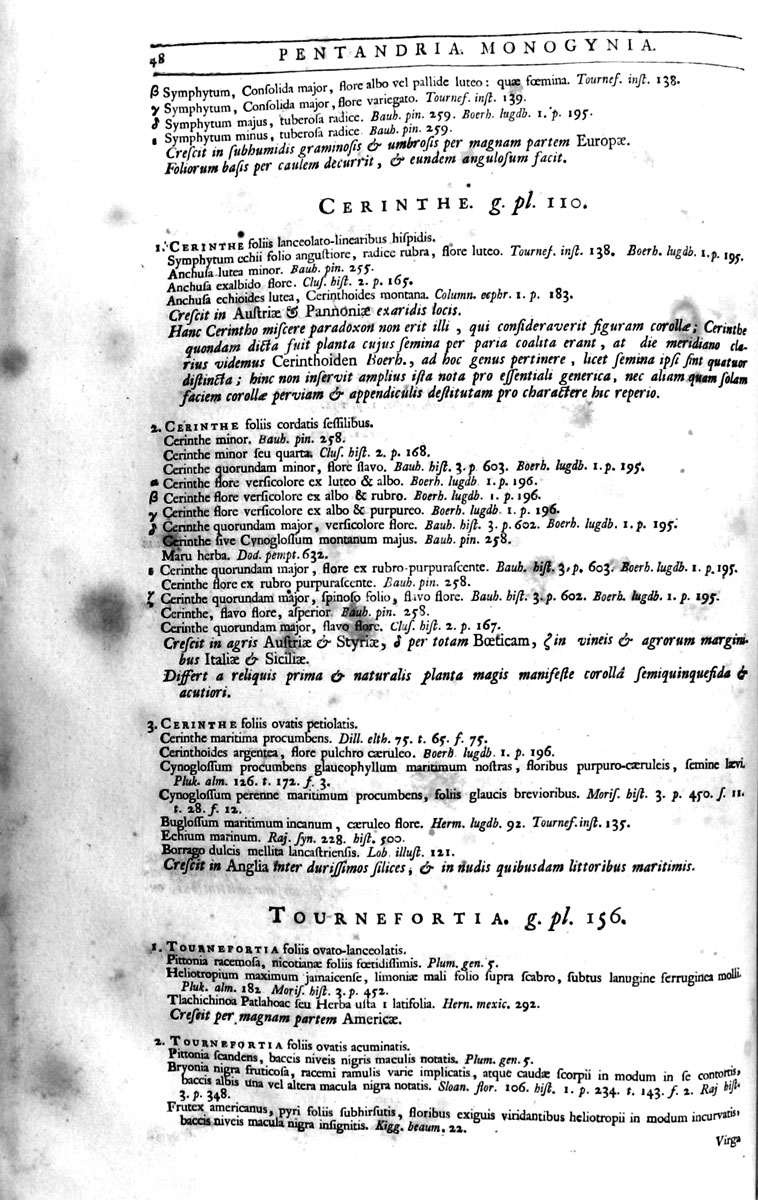 48 PENTANDRIA. MONOGYNIA.
β Symphytum, Conſolida major, flore albo vel pallide luteo: quæ fœmina. Tournef. inſt. 138.
γ Symphytum, Conſolida major, flore variegato. Tournef. inſt. 139.
δ Symphytum majus, tuberoſa radice. Bauh. pin. 259. Boerh. lugdb. 1. p. 195.
ε Symphytum minus, tuberoſa radice. Bauh. pin. 259.
Creſcit in ſubhumidis graminoſis & umbroſis per magnam partem Europæ.
Foliorum baſis per caulem decurrit, & eundem anguloſum facit.
CERINTHE. g. pl. 110.
1. CERINTHE foliis lanceolato-linearibus hiſpidis.
Symphytum echii folio anguſtiore, radice rubra, flore luteo. Tournef. inſt. 138. Boerh. lugdb. 1. p. 195.
Anchuſa lutea minor. Bauh. pin. 255.
Anchuſa exalbido flore. Cluſ. hiſt. 2. p. 165.
Anchuſa echioides lutea, Cerinthoides montana. Column. ecphr. 1. p. 183.
Creſcit in Auſtriæ & Pannoniæ exaridis locis.
Hanc Cerintho miſcere paradoxon non erit illi, qui conſideraverit figuram corollæ; Cerinthe
quondam dicta fuit planta cujus ſemina per paria coalita erant, at die meridiano cla-
rius videmus Cerinthoiden Boerh., ad hoc genus pertinere, licet ſemina ipſi ſint quatuor
diſtincta; hinc non inſervit amplius iſta nota pro eſſentiali generica, nec aliam quam ſolam
faciem corollæ perviam & appendiculis deſtitutam pro charactere huc reperio.
2. CERINTHE foliis cordatis ſeſſilibus.
Cerinthe minor. Bauh. pin. 258.
Cerinthe minor ſeu quarta. Cluſ. hiſt. 2. p. 168.
Cerinthe quorundam minor, flore flavo. Bauh. hiſt. 3. p 603. Boerh. lugdb. 1. p. 195.
α Cerinthe flore verſicolore ex luteo & albo. Boerh. lugdb 1. p. 196.
β Cerinthe flore verſicolore ex albo & rubro. Boerh. lugdb. 1. p. 196.
γ Cerinthe flore verſicolore ex albo & purpureo. Boerh. lugdb. 1. p. 196.
δ Cerinthe quorundam major, verſicolore flore. Bauh. hiſt. 3. p. 602. Boerh. lugdb. 1. p. 195.
Cerinthe ſive Cynogloſſum montanum majus. Bauh. pin. 258.
Maru herba. Dod. pempt. 632.
ε Cerinthe quorundam major, flore ex rubro-purpuraſcente. Bauh. hiſt. 3. p. 603. Boerh. lugdb. 1. p. 195.
Cerinthe flore ex rubro purpuraſcente. Bauh. pin. 258.
ζ Cerinthe quorundam major, ſpinoſo folio, flavo flore. Bauh. hiſt. 3. p. 602. Boerh. lugdb. 1. p. 195.
Cerinthe, flavo flore, aſperior. Bauh. pin. 258.
Cerinthe quorundam major, flavo flore. Cluſ. hiſt. 2. p. 167.
Creſcit in agris Auſtriæ & Styriæ, δ per totam Bœticam, ζ in vineis & agrorum margini-
bus Italiæ & Siciliæ.
Differt a reliquis prima & naturalis planta magis manifeſte corollâ ſemiquinquefida &
acutiori.
3. CERINTHE foliis ovatis petiolatis.
Cerinthe maritima procumbens. Dill. elth. 75. t. 65. f. 75.
Cerinthoides argentea, flore pulchro cæruleo. Boerh lugdb. 1. p. 196.
Cynogloſſum procumbens glaucophyllum maritimum noſtras, floribus purpuro-cæruleis, ſemine lævi.
Pluk. alm. 126. t. 172. f. 3.
Cynogloſſum perenne maritimum procumbens, foliis glaucis brevioribus. Moriſ. hiſt. 3. p. 450. ſ. 11.
t. 28. f. 12.
Bugloſſum maritimum incanum, cæruleo flore. Herm. lugdb. 92. Tournef. inſt. 135.
Echium marinum. Raj. ſyn. 228. hiſt. 500.
Borrago dulcis mellita lancaſtrienſis. Lob. illuſt. 121.
Creſcit in Anglia inter duriſſimos ſilices, & in nudis quibusdam littoribus maritimis.
TOURNEFORTIA. g. pl. 156.
1. TOURNEFORTIA foliis ovato-lanceolatis.
Pittonia racemoſa, nicotianæ foliis fœtidiſſimis. Plum. gen. 5.
Heliotropium maximum jamaicenſe, limoniæ mali folio ſupra ſcabro, ſubtus lanugine ferruginea molli.
Pluk. alm. 182 Moriſ. hiſt. 3. p. 452.
Tlachichinoa Patlahoac ſeu Herba uſta 1 latifolia. Hern. mexic. 292.
Creſcit per magnam partem Americæ.
2. TOURNEFORTIA foliis ovatis acuminatis.
Pittonia ſcandens, baccis niveis nigris maculis notatis. Plum. gen. 5.
Bryonia nigra fruticoſa, racemi ramulis varie implicatis, atque caudæ ſcorpii in modum in ſe contortis,
baccis albis una vel altera macula nigra notatis. Sloan. flor. 106. hiſt. 1. p. 234. t. 143. f. 2. Raj hiſt.
3. p. 348.
Frutex americanus, pyri foliis ſubhirſutis, floribus exiguis viridantibus heliotropii in modum incurvatis,
baccis niveis macula nigra inſignitis. Kigg. beaum. 22.
Virga